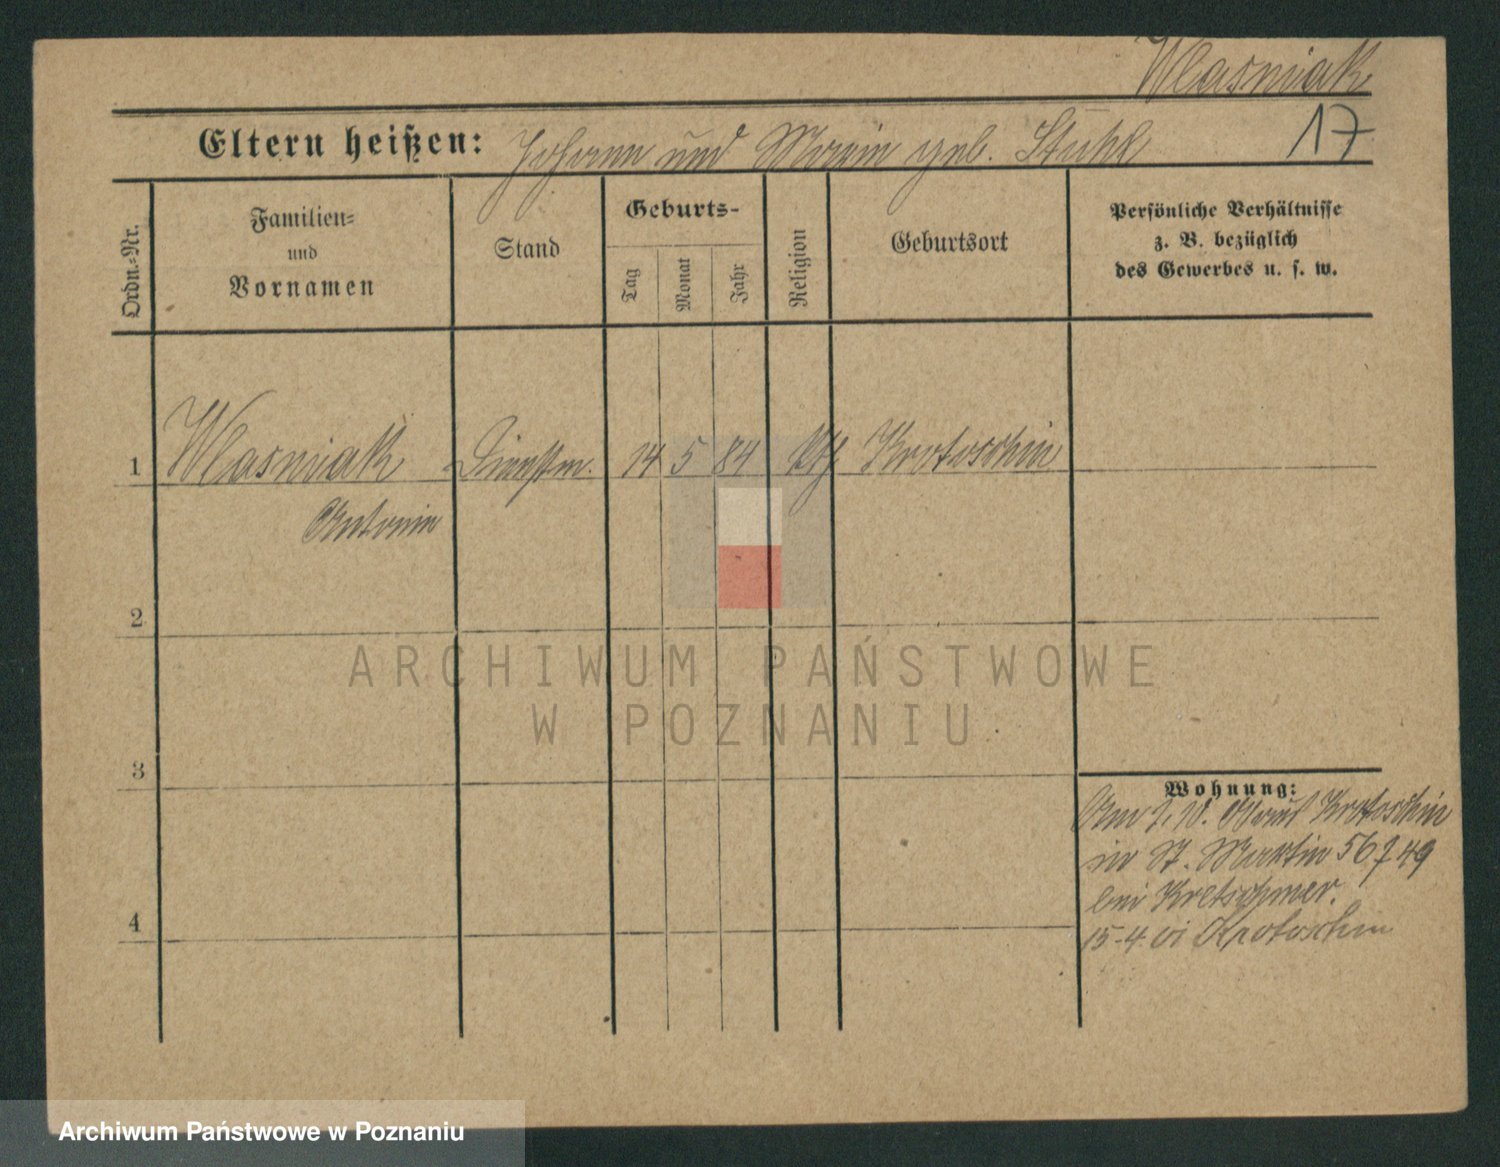 Wlasniak
Eltern heißen: Johann und Marie geb. Stuhl
17
Ordn.=Nr.
Familien=
und
Vornamen
Stand
Geburts-
Tag
Monat
Jahr
Religion
Geburtsort
Persönliche Verhältnisse
z. B. bezüglich
des Gewerbes u. s. w.
1 Wlasniak Dienstm. 14 5 84 Kth Krotoschin
Antonie
2
ARCHIWUM PAŃSTWOWE
W POZNANIU
3
Wohnung:
Krotoschin
in St. Martin 56/49
bei Kretschmer.
4
15-4 01 Krotoschin
Archiwum Państwowe w Poznaniu